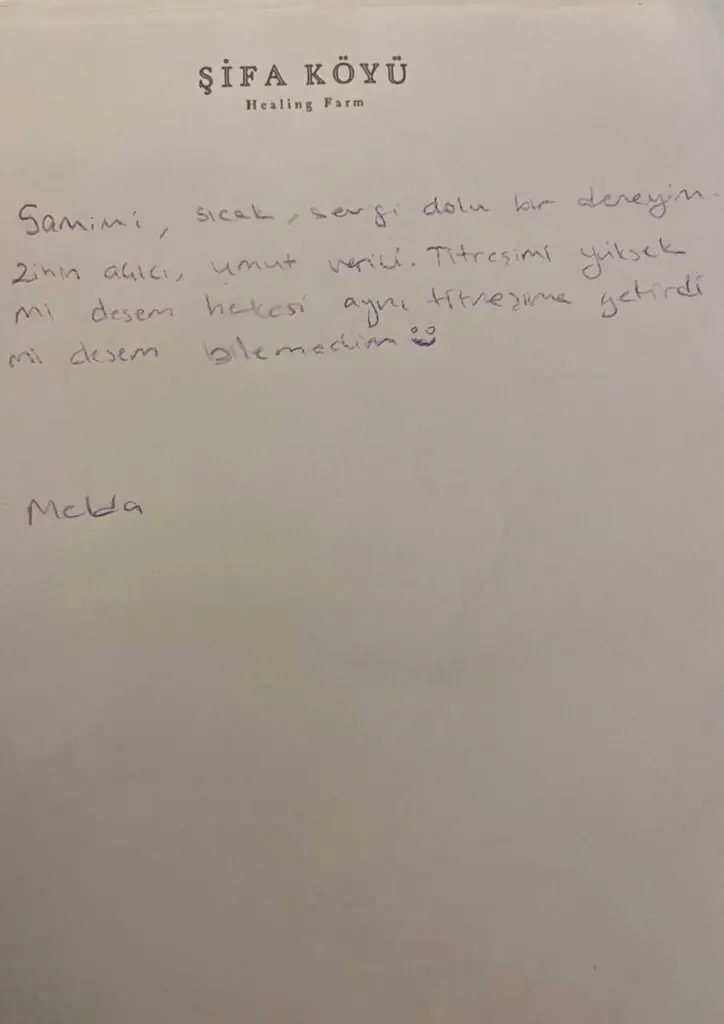 ŞİFA KÖYÜ
Healing Farm
Samimi, sıcak, sevgi dolu bir deneyim.
Zihin açıcı, umut verici. Titreşimi yüksek
mi desem hekesi aynı titreşime getirdi
mi desem bilemedim
Melda